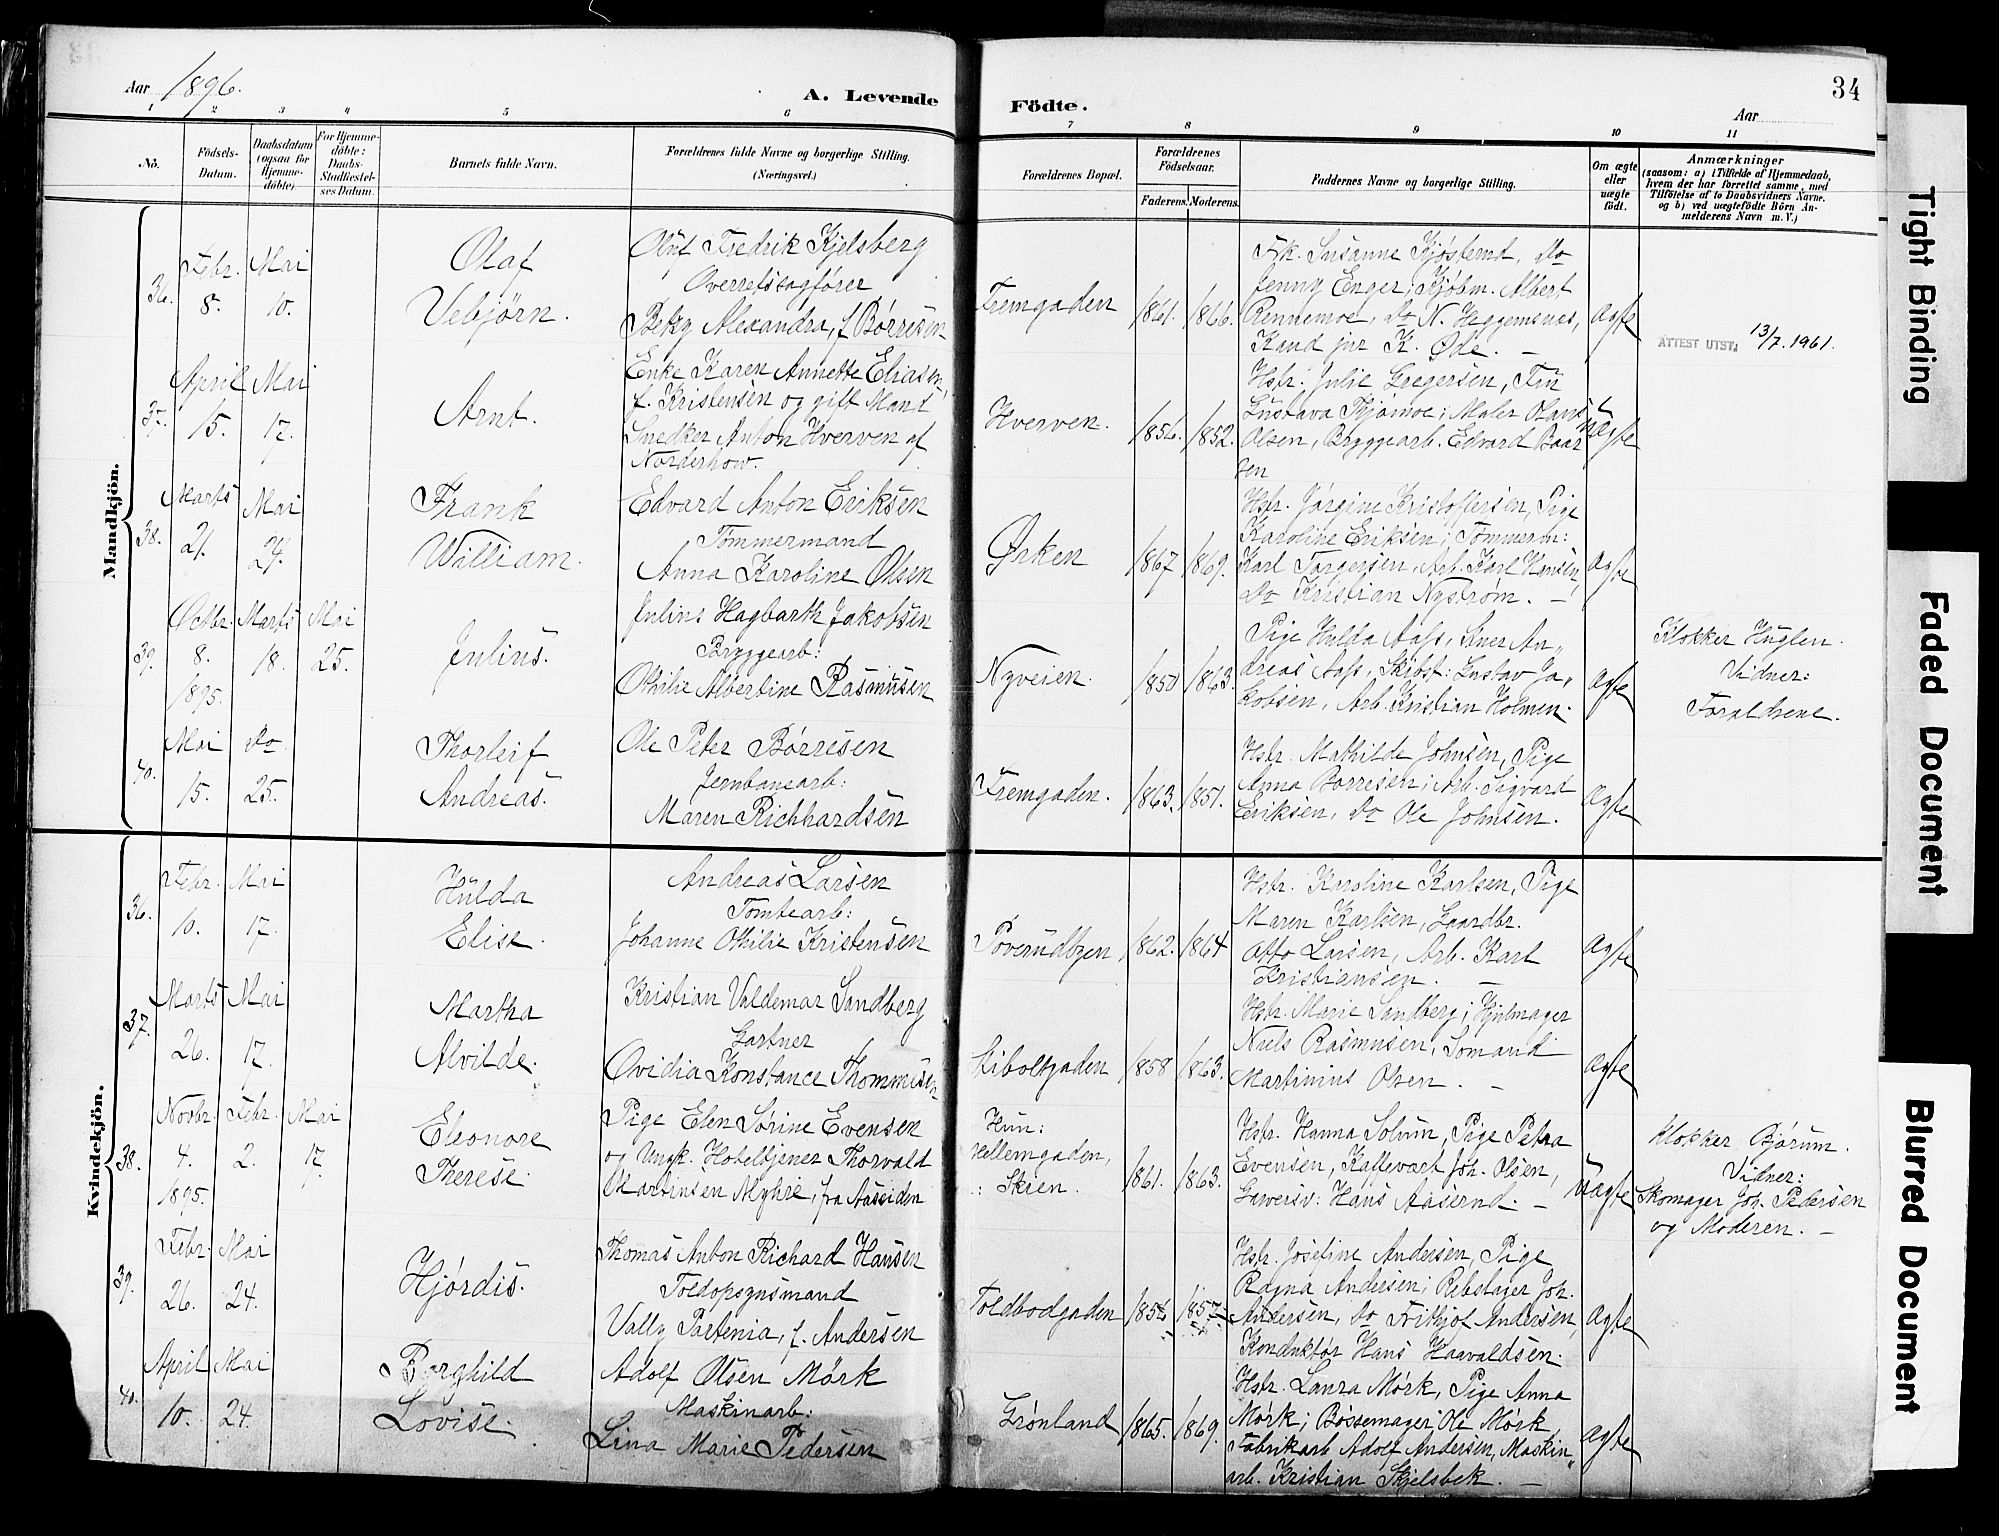 Aar 1896.
A. Levende Födte.
Aar
34
1 2 3 4 5 6 7 8 9 10 11
No.
Födsels-
Datum.
Daabsdatum
(ogsaa for
Hjemme-
döbte).
For Hjemme-
döbte:
Daabs-
Stadfæstel-
ses Datum.
Barnets fulde Navn.
Forældrenes fulde Navne og borgerlige Stilling.
(Næringsvei.)
Forældrenes Bopæl.
Forældrenes
Födselsaar.
Faderens. Moderens.
Faddernes Navne og borgerlige Stilling.
Om ægte
eller
uægte
födt.
Anmærkninger
(saasom: a) i Tilfælde af Hjemmedaab,
hvem der har forrettet samme, med
Tilföielse af to Daabsvidners Navne,
og b) ved uægtefödte Börn An-
melderens Navn m. V.)
Mandkjön.
36.
Febr.
8.
Mai
10.
Olaf
Vebjörn.
Oluf Fredrik Kjelsberg
Overretssagfører
Betzy Alexandra, f. Børresen
Fremgaden
1861. 1866.
Frk. Susanne Kjøsterud, Do
Jenny Enger; Kjøbm. Albert
Rennemoe, Do N. Heggemsnes,
Kand jur K. Øde. —
ægte
ATTEST UTST. 13/7. 1961.
37.
April
15.
Mai
17.
Arnt.
Enke Karen Annette Eliasen,
f. Kristensen og gift Mand
Snedker Anton Hverven af
Norderhow.
Hverven.
1856. 1852.
Hstr. Julie Gregersen, Fru
Gustava Thjømoe; Maler Olaus
Olsen, Bryggearb. Edvard Baar
sen
uægte
38.
Marts
21.
Mai
24.
Frank
William.
Edvard Anton Eriksen
Tømmermand
Anna Karoline Olsen
Ørken
1867 1869.
Hstr. Jørgine Kristoffersen, Pige
Karoline Eriksen; Tømmerm:
Karl Torgersen, Arb. Karl Hansen,
Do Kristian Nystrøm. —
ægte
39.
Octbr.
8.
1895.
Marts
18.
Mai
25.
Julius.
Julius Hagbarth Jakobsen
Bryggearb:
Othilie Albertine Rasmusen
Nyveien.
1850 1863.
Pige Hulda Aass, Sner An„
dreas Aass, Skibst: Gustav Ja„
kobsen, Arb. Kristian Holmen.
ægte
Klokker Huglen.
Vidner:
Forældrene.
40.
Mai
15.
Do
25.
Thorleif
Andreas.
Ole Peter Børresen
Jernbanearb:
Maren Richhardsen
Fremgaden.
1863. 1851.
Hstr. Mathilde Johnsen, Pige
Anna Borresen; Arb. Sigvard
Eriksen, Do Ole Johnsen.
ægte
Kvindekjön.
36.
Febr.
10.
Mai
17.
Hulda
Elise.
Andreas Larsen
Tomtearb:
Johanne Othilie Kristensen
Poverudbyen
1862. 1864
Hstr. Karoline Karlsen, Pige
Maren Karlsen, Gaardbr.
Otto Larsen, Arb. Karl
Kristiansen. —
ægte
37.
Marts
26.
Mai
17.
Martha
Alvilde.
Kristian Valdemar Sandberg
Gartner
Ovidia Konstance Thommesen
Kiboltgaden
1858 1863.
Hstr. Marie Sandberg; Hjulmager
Niels Rasmusen, Sømand
Martinius Olsen. —
ægte
38.
Novbr.
4.
1895.
Febr.
2.
Mai
17.
Eleonore
Therese.
Pige Elen Sørine Evensen
og Ungk. Hoteltjener Thorvald
Martinsen Myhre, fra Aassiden
Hun:
Mellemgaden,
: Skien.
1861. 1863.
Hstr. Hanna Solum, Pige Petra
Evensen, Kaffevært Joh. Olsen,
Garversv: Hans Aaserud. —
uægte
Klokker Bjørum.
Vidner:
Skomager Joh. Pedersen
og Moderen. —
39.
Febr.
26.
Mai
24.
Hjørdis.
Thomas Anton Richard Hansen
Toldopsynsmand
Vally Partenia, f. Andersen
Toldbodgaden
1856 1857
Hstr. Josefine Andersen, Pige
Ragna Andersen; Rebslager Joh.
Andersen, Do Frithjof Andersen,
Konduktør Hans Haavaldsen.
ægte
40.
April
10.
Mai
24.
Borghild
Lovise.
Adolf Olsen Mørk
Maskinarb:
Lina Marie Pedersen
Grønland
1865. 1869.
Hstr. Laura Mørk, Pige Anna
Mørk; Bøssemager Ole Mørk,
Fabrikarb Adolf Andersen, Maskin„
arb. Kristian Skjelsbek. —
ægte
Tight Binding
Faded Document
Blurred Document